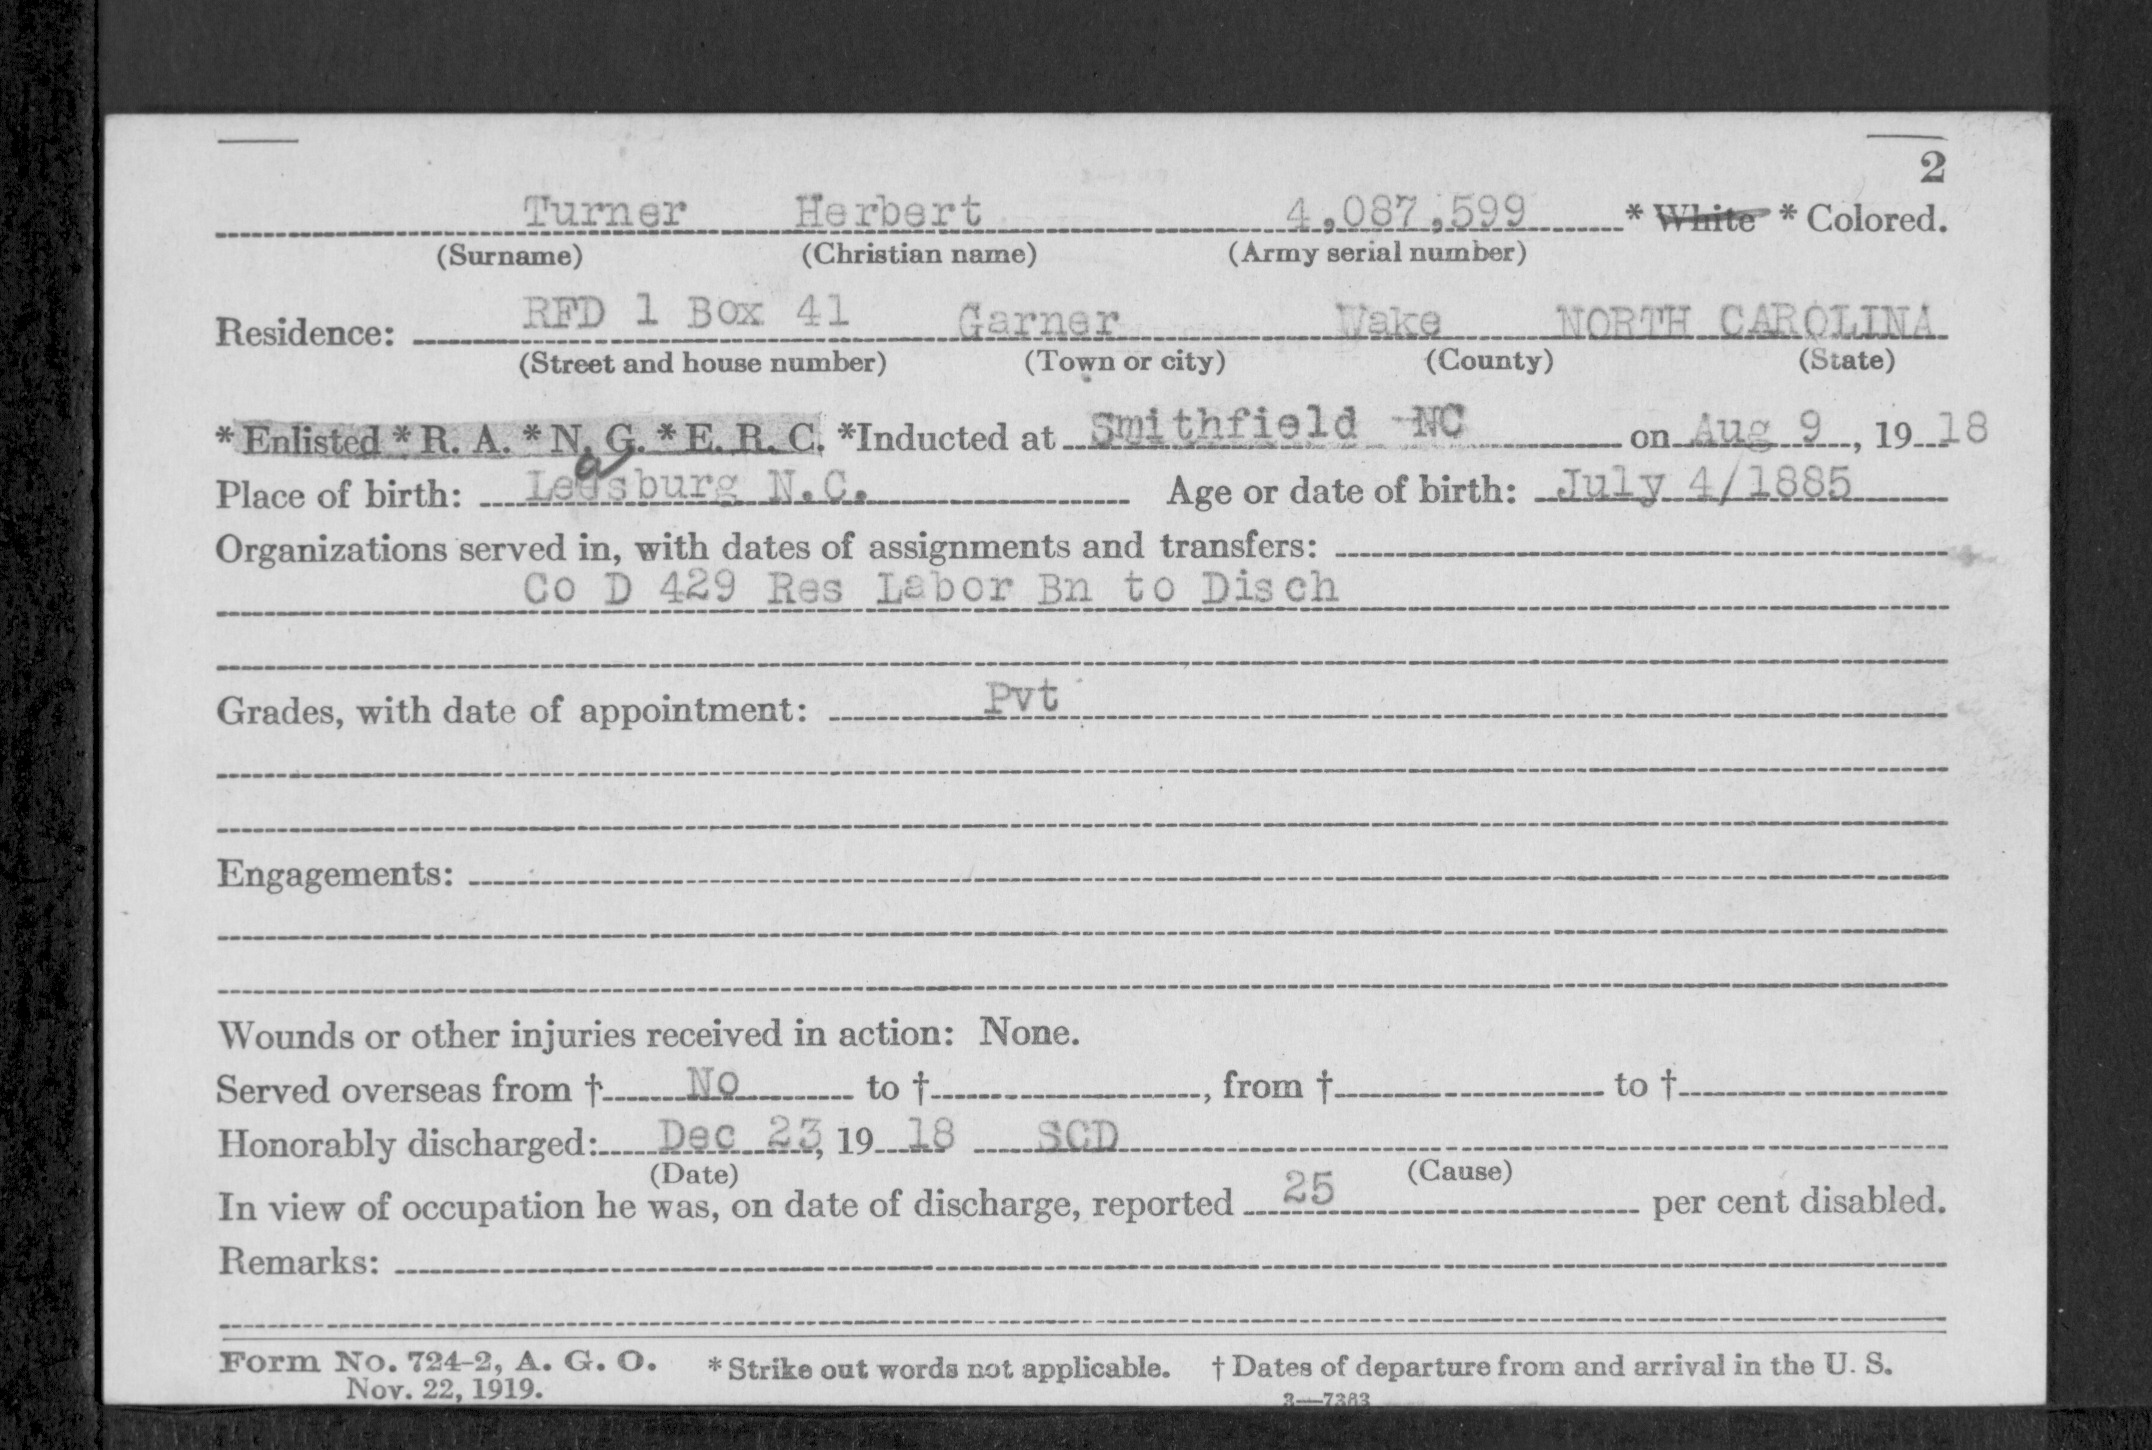 2
Turner Herbert 4,087,599 * White * Colored.
(Surname) (Christian name) (Army serial number)
Residence: RFD 1 Box 41 Garner Wake NORTH CAROLINA
(Street and house number) (Town or city) (County) (State)
* Enlisted * R. A. * N. G. * E. R. C. *Inducted at Smithfield NC on Aug 9, 19 18
Place of birth: Leasburg N.C. Age or date of birth: July 4/1885
Organizations served in, with dates of assignments and transfers:
Co D 429 Res Labor Bn to Disch
Grades, with date of appointment: Pvt
Engagements:
Wounds or other injuries received in action: None.
Served overseas from † No to †, from † to †
Honorably discharged: Dec 23, 19 18 SCD
(Date) (Cause)
In view of occupation he was, on date of discharge, reported 25 per cent disabled.
Remarks:
Form No. 724-2, A. G. O. * Strike out words not applicable. † Dates of departure from and arrival in the U. S.
Nov. 22, 1919. 3—7383